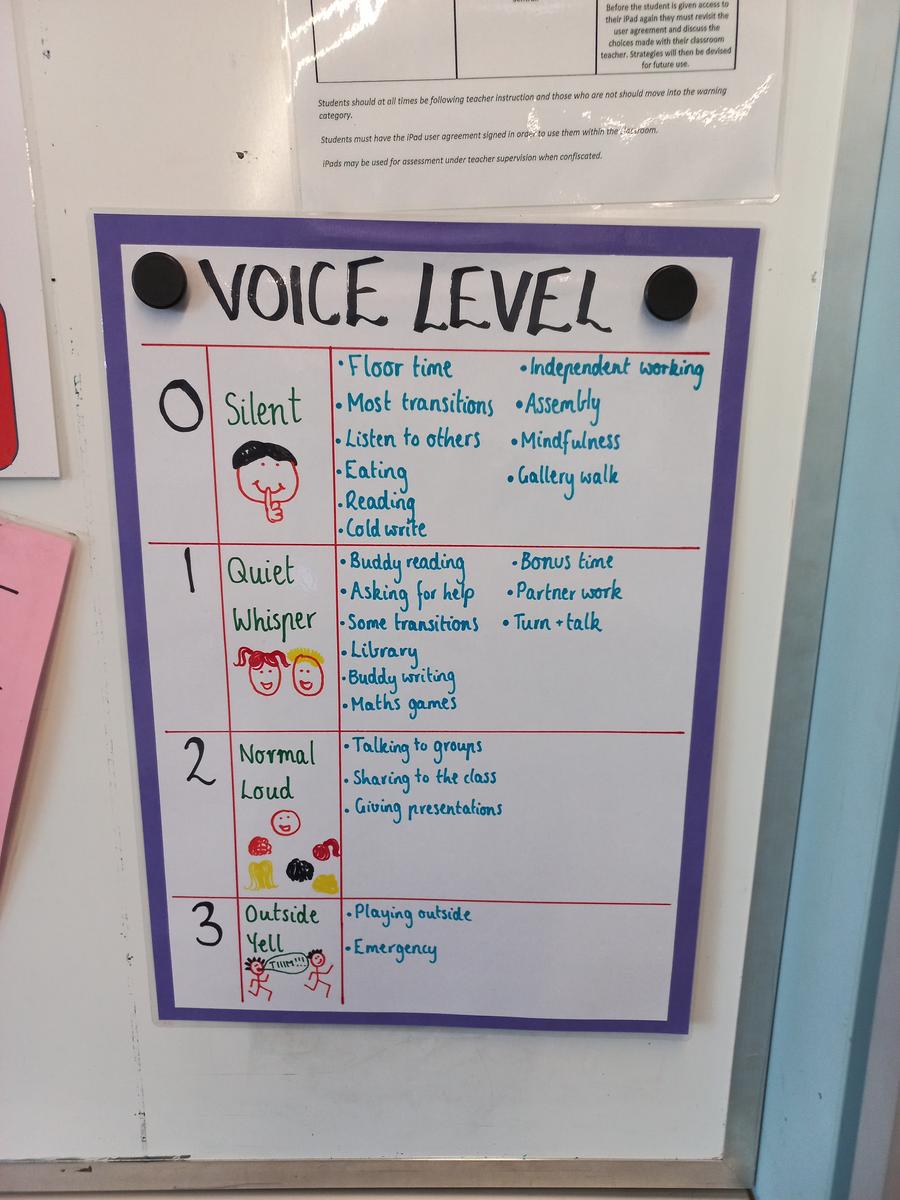 Before the student is given access to
their iPad again they must revisit the
user agreement and discuss the
choices made with their classroom
teacher. Strategies will then be devised
for future use.
Students should at all times be following teacher instruction and those who are not should move into the warning
category.
Students must have the iPad user agreement signed in order to use them within the classroom.
iPads may be used for assessment under teacher supervision when confiscated.
VOICE LEVEL
0
Silent
• Floor time
• Most transitions
• Listen to others
• Eating
• Reading
• Cold write
• Independent working
• Assembly
• Mindfulness
• Gallery walk
1
Quiet
Whisper
• Buddy reading
• Asking for help
• Some transitions
• Library
• Buddy writing
• Maths games
• Bonus time
• Partner work
• Turn + talk
2
Normal
Loud
• Talking to groups
• Sharing to the class
• Giving presentations
3
Outside
Yell
TIIIM!!!
• Playing outside
• Emergency